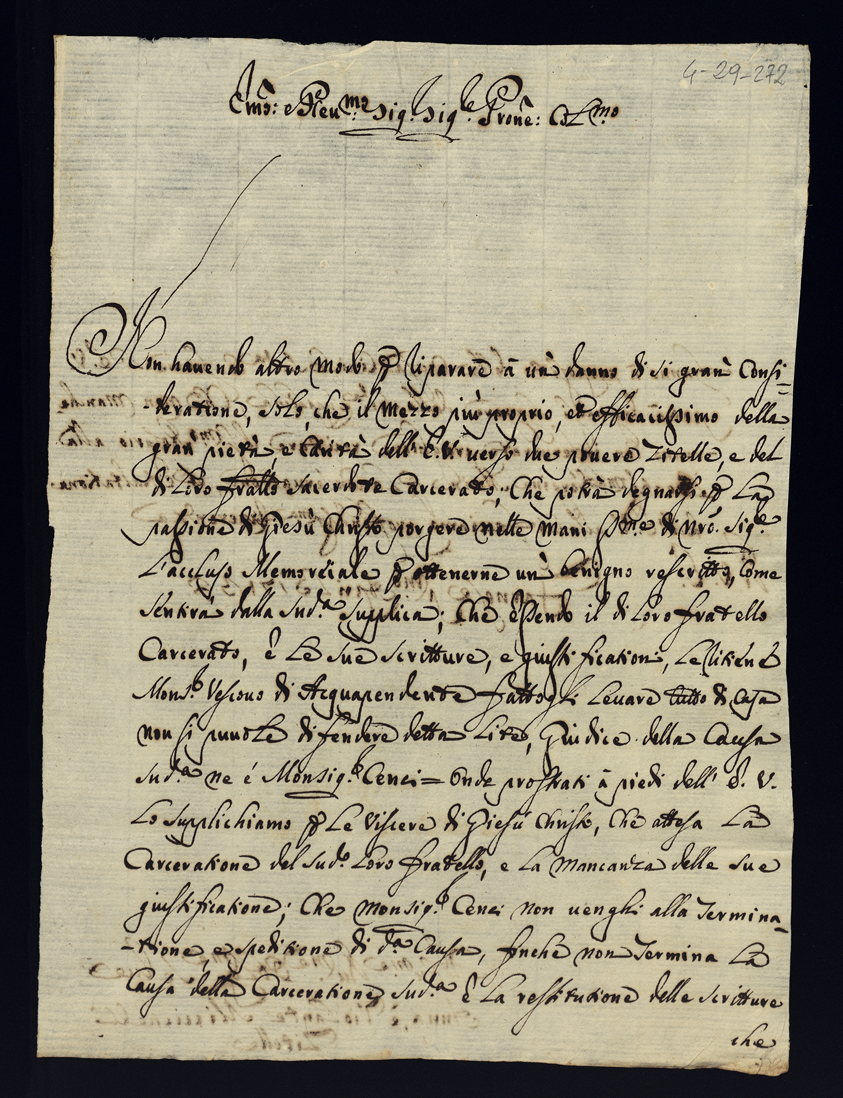 4-29-272
Emo: e Reumo Sig. Sig.e Prone: Colmo
Non hauendo altro modo p riparare à un danno di si gran Consi=
-deratione, solo, che il mezzo più proprio, et efficacissimo della
gran pietà e Carità dell' E. V. uerso due pouere Zitelle, e del
di loro fratello Sacerdote Carcerato, Che potrà degnarsi p La
passione di Giesù Christo porgere nelle mani di Nro. Sig.e
L'accluso Memoriale p ottenerne un benigno rescritto, Come
sentirà dalla Sud.a Supplica; Che essendo il di loro fratello
Carcerato, è Le sue scritture, e giustificationi, Le ritiene
Mons.r Vescouo di Acquapendente fattogli Leuare tutto di Casa
non si puole difendere detta Lite, Giudice della Causa
Sud.a ne é Monsig.r Cenci= Onde prostrati à piedi dell' E. V.
Lo supplichiamo p Le Viscere di Giesù Christo, Che attesa La
Carceratione del Sud.o Loro fratello, e La mancanza delle sue
giustificatione; Che Monsig.r Cenci non uenghi alla Termina-
-tione, e speditione di d.a Causa, finche non Termina La
Causa della Carceratione Sud.a è La restitutione delle scritture
che